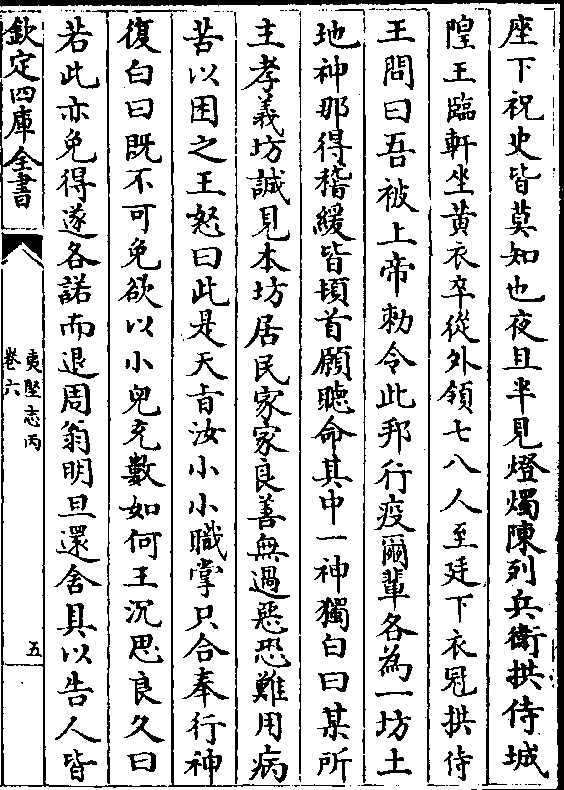 座下祝史皆莫知也夜且半見燈燭陳列兵衛拱侍城
隍王臨軒坐黄衣卒從外領七八人至廷下衣冠拱侍
王問曰吾被上帝勅令此邦行疫爾輩各為一坊土
地神那得稽緩皆頓首願聽命其中一神獨白曰某所
主孝義坊誠見本坊居民家家良善無過惡恐難用病
苦以困之王怒曰此是天旨汝小小職掌只合奉行神
復白曰既不可免欲以小兒充數如何王沉思良久曰
若此亦免得遂各諾而退周翁明旦還舍具以告人皆
欽定四庫全書
夷堅志丙
卷六
五